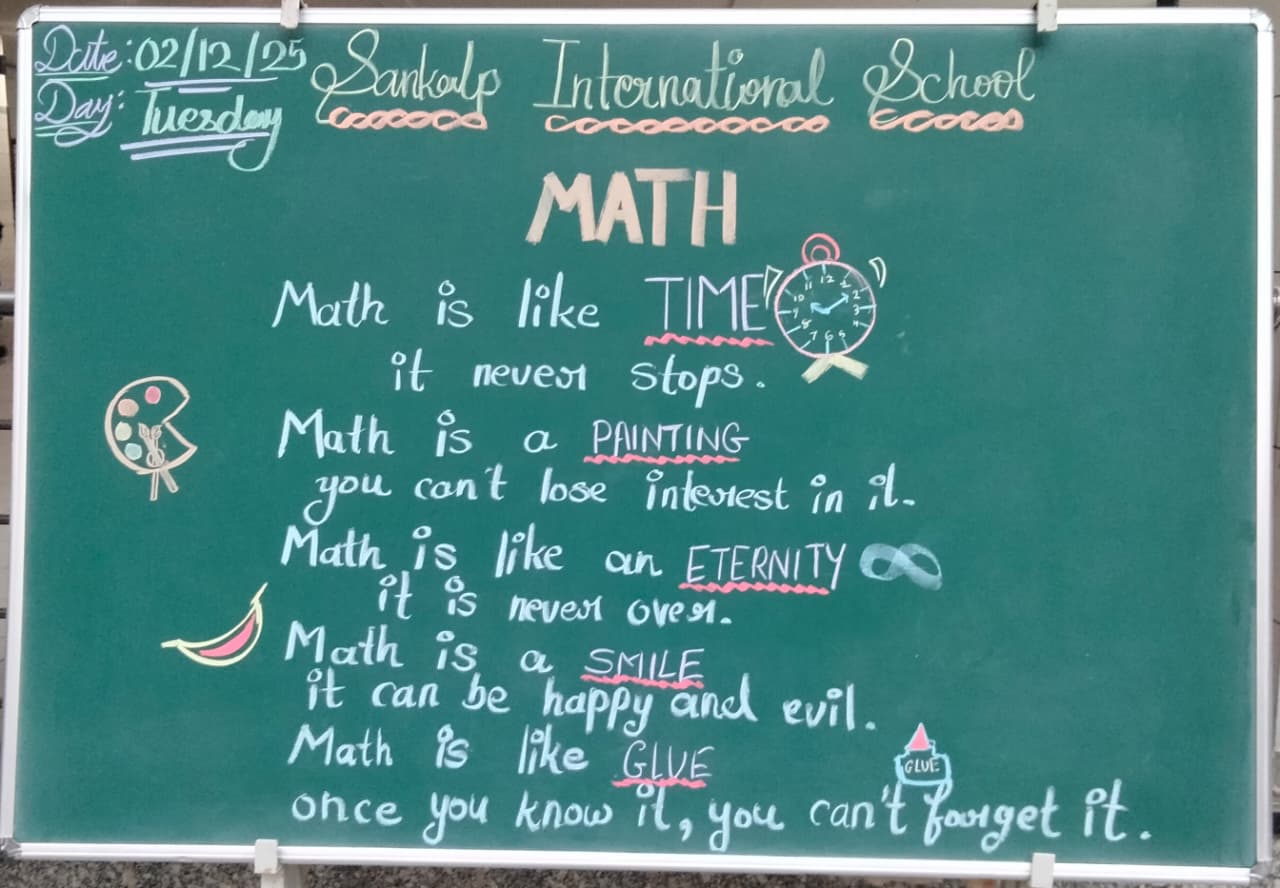 Date: 02/12/25
Day: Tuesday
Sankalp International School
MATH
Math is like TIME
12 1 2 3 4 5 6 7 8 9 10 11
it never stops.
Math is a PAINTING
you can't lose interest in it.
Math is like an ETERNITY ∞
it is never over.
Math is a SMILE
it can be happy and evil.
Math is like GLUE
GLUE
once you know it, you can't forget it.